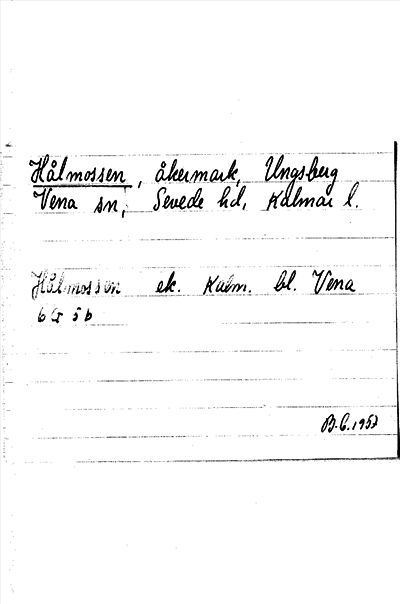 Hålmossen, åkermark, Ungsberg
Vena sn, Sevede hd, Kalmar l.
Hålmossen ek. Kalm. bl. Vena
6 G 5 b
B.C. 1957